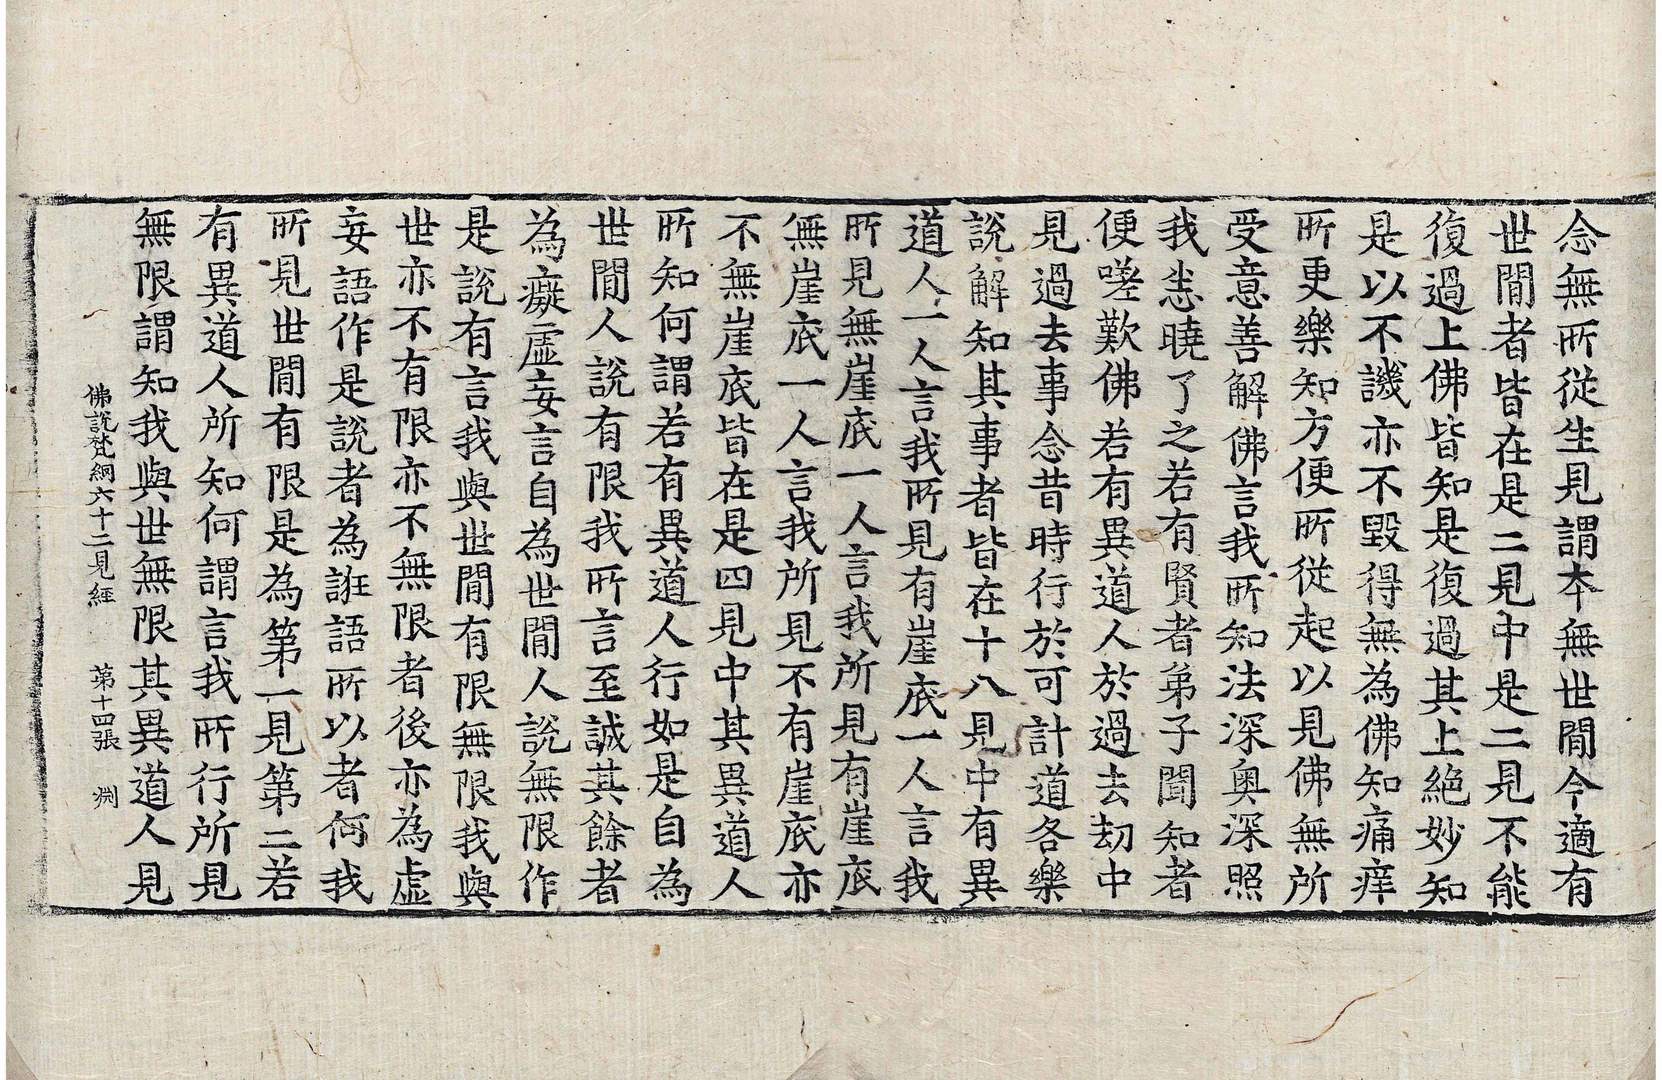 念無所從生見謂本無世間今適有
世間者皆在是二見中是二見不能
復過上佛皆知是復過其上絶妙知
是以不譏亦不毀得無為佛知痛痒
所更樂知方便所從起以見佛無所
受意善解佛言我所知法深奧深照
我悉曉了之若有賢者弟子聞知者
便嗟歎佛若有異道人於過去劫中
見過去事念昔時行於可計道各樂
說解知其事者皆在十八見中有異
道人一人言我所見有崖底一人言我
所見無崖底一人言我所見有崖底
無崖底一人言我所見不有崖底亦
不無崖底皆在是四見中其異道人
所知何謂若有異道人行如是自為
世間人說有限我所言至誠其餘者
為癡虛妄言自為世間人說無限作
是說有言我與世間有限無限我與
世亦不有限亦不無限者後亦為虛
妄語作是說者為誑語所以者何我
所見世間有限是為第一見第二若
有異道人所知何謂言我所行所見
無限謂知我與世無限其異道人見
佛說梵網六十二見經 第十四張 渕